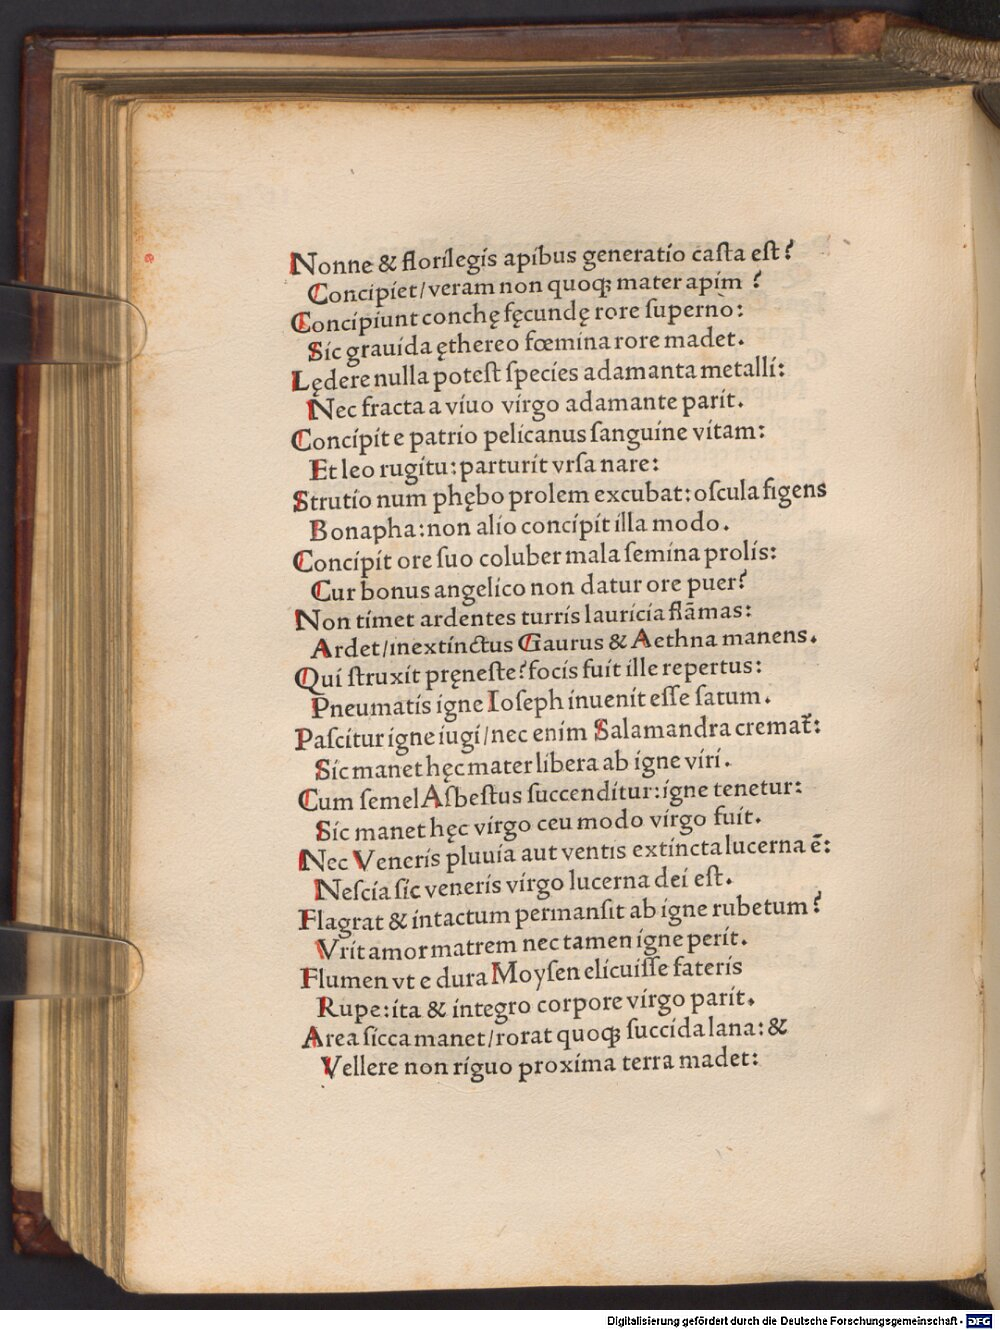 Nonne & florilegis apibus generatio caſta eſt?
Concipiet/veram non quoqꝫ mater apim ?
Concipiunt conchę fęcundę rore ſuperno:
Sic grauida ęthereo fœmina rore madet.
Lędere nulla poteſt ſpecies adamanta metalli:
Nec fracta a viuo virgo adamante parit.
Concipit e patrio pelicanus ſanguine vitam:
Et leo rugitu: parturit vrſa nare:
Strutio num phębo prolem excubat: oſcula figens
Bonapha: non alio concipit illa modo.
Concipit ore ſuo coluber mala ſemina prolis:
Cur bonus angelico non datur ore puer?
Non timet ardentes turris lauricia flāmas:
Ardet/inextinctus Gaurus & Aethna manens.
Qui ſtruxit pręneſte? focis fuit ille repertus:
Pneumatis igne Ioſeph inuenit eſſe ſatum.
Paſcitur igne iugi/nec enim Salamandra cremat̃:
Sic manet hęc mater libera ab igne viri.
Cum ſemel Aſbeſtus ſuccenditur: igne tenetur:
Sic manet hęc virgo ceu modo virgo fuit.
Nec Veneris pluuia aut ventis extincta lucerna ē:
Neſcia ſic veneris virgo lucerna dei eſt.
Flagrat & intactum permanſit ab igne rubetum?
Vrit amor matrem nec tamen igne perit.
Flumen vt e dura Moyſen elicuiſſe fateris
Rupe: ita & integro corpore virgo parit.
Area ſicca manet/rorat quoqꝫ ſuccida lana: &
Vellere non riguo proxima terra madet:
Digitalisierung gefördert durch die Deutsche Forschungsgemeinschaft - DFG